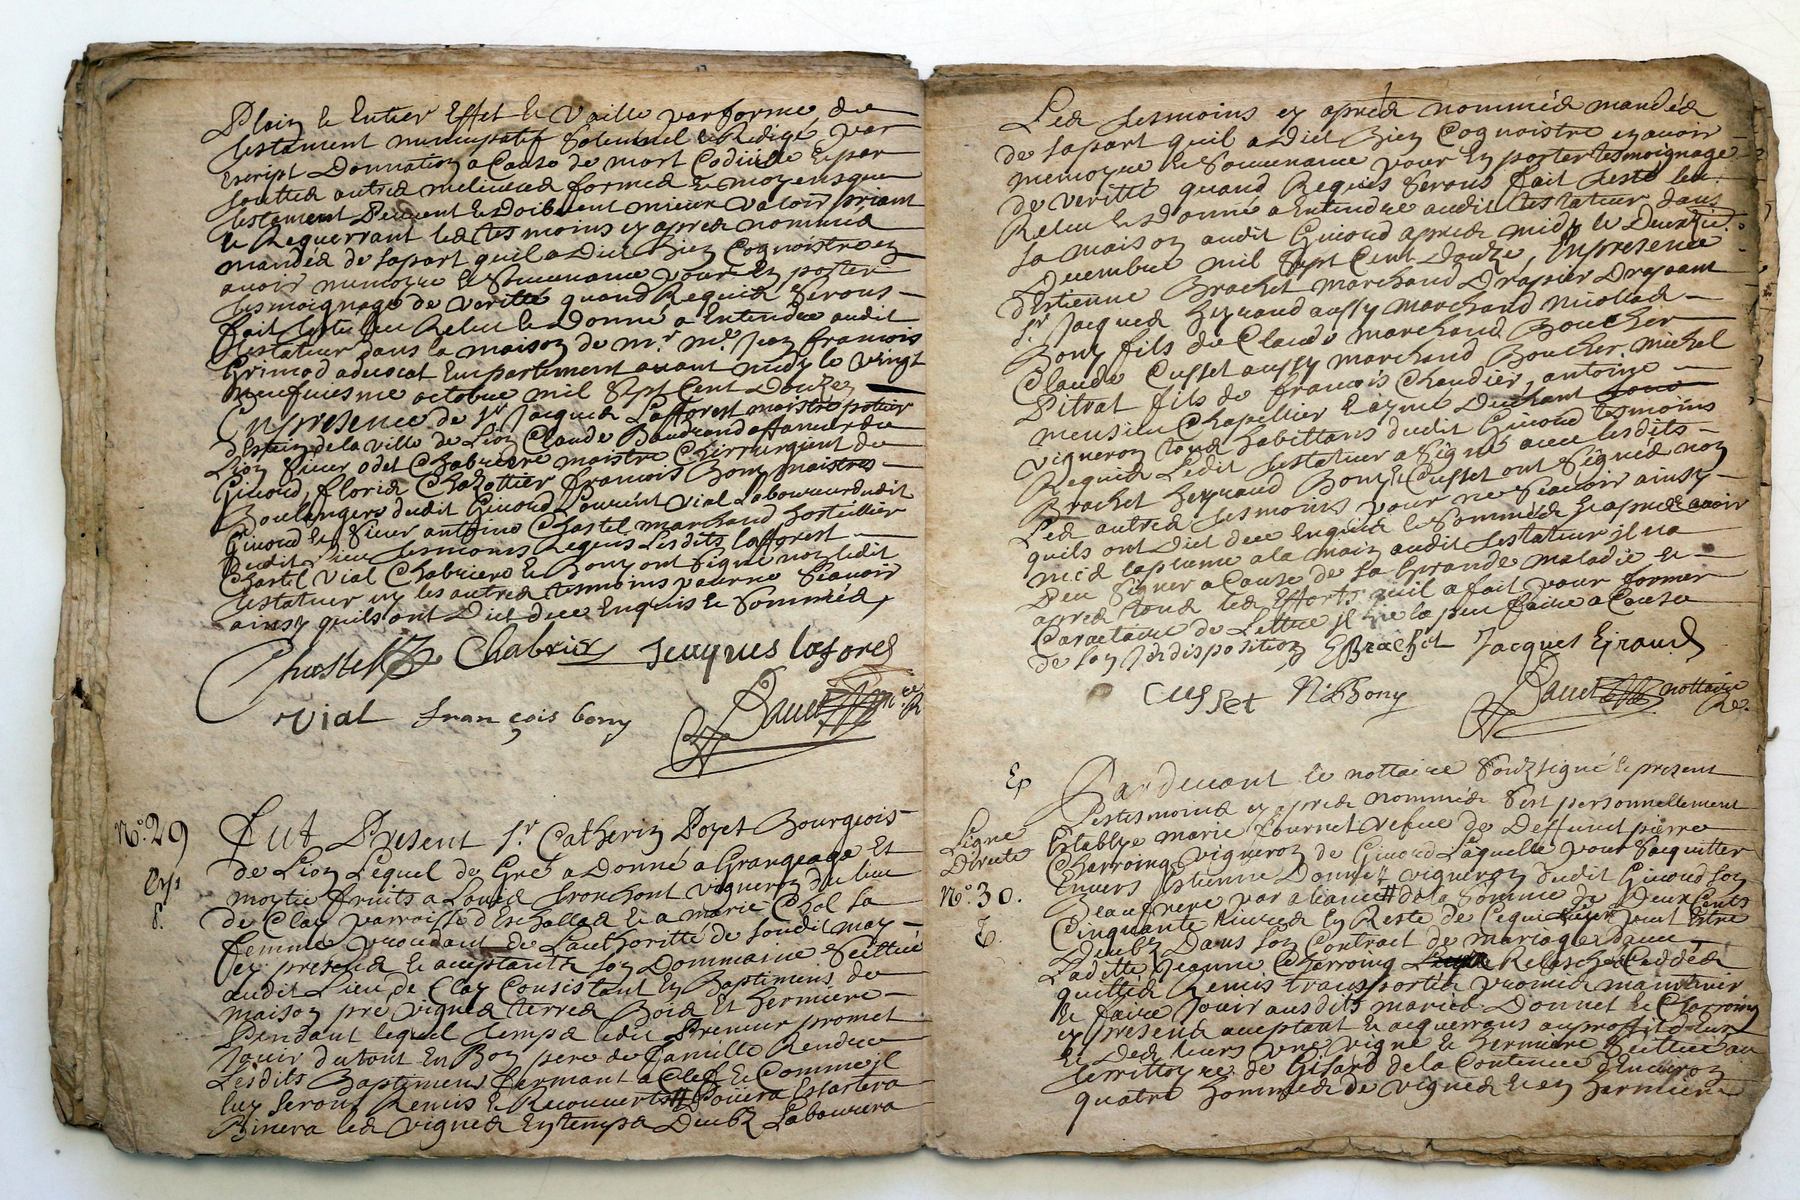 Plain & Entier Effet & Vaille par forme de
testament nuncupatif Solemnel & Redigé par
Escript Donnation a Cause de mort Codicille & par
toutes autres melieures formes & moyens que
testament Peuvent & Doibvent mieux Valoir priant
& Requerrant les tesmoins ey apres nommés
mandés de sa part quil a Dict Bien Cognoistre ey
avoir memoyre & Souvenance pour En porter
tesmoignage de Veritté quand Requis Seront –
fait leu Releu & Donné a Entendre audit
testateur dans la maison de mr. me. Jean francois
Grimod advocat En parlement avant midy le vingt
neufviesme octobre mil Sept Cent Douze
En presence de Sr Jacques Lafforest maistre potier
destein de la ville de Lion Claude Baudrand affaneur de
Lion Sieur odet Chabriere maistre Chirurgient de
Givord, floris Chazottier francois Bony maistres –
Boulangers dudit Givord Laurent Vial Laboureur dudit
Givord & Sieur anthoine Chastel marchand hostellier
dudit Lieu tesmoins Requis Lesdits lafforest –
Chastel Vial Chabriere & Bony ont Signé non ledit
testateur ny les autres tesmoins pour ne Scavoir
ainsy quils ont Dict de ce Enquis & Sommés,
Chastel Chabrier Jacques laforest
Vial francois bony
No. 29 Fut Present Sr. Catherin Poyet Bourgeois
de Lion Lequel de Gré a Donné a Grangeage Et
moytié fruits a Louis vigneron du lieu
de Clay parroisse d'Eschallas & a marie Chol sa
femme procedant de L'authoritté de soudit mary –
ey presents & acceptants son Dommaine Scittué
audit Lieu de Clay Consistant En Baptimens de
maison pré vignes terres Bois Et hermiere –
Pendant lequel temps ledit Preneur promet
Jouir du tout En Bon pere de famille Rendre
Lesdits Baptimens fermant a Clef & Comme jl
luy Seront Remis & Recouverts
Binera les vignes En temps Deub Labourera
Les tesmoins ey apres nommés mandés
de sa part quil a Dict Bien Cognoistre ey avoir
memoyre & Souvenance pour En porter tesmoignage
de Veritté quand Requis Seront fait leu
Releu & Donné a Entendre audit testateur dans
sa maison audit Givord apres midy le
Decembre mil Sept Cent Douze, En presence
d'Estienne Brachet marchand Drapier Drapant
Sr. Jacques Heyraud aussy marchand nicollas –
Bony fils de Claude marchand Boucher
Claude Cusset aussy marchand Boucher, michel
Pitrat fils de francois Chandier, antoine –
mensieu Chapellier & aymé
vigneron tous habittans dudit Givord tesmoins
Requis Ledit testateur a Signé avec lesdits –
Brachet Heyraud Bony & Cusset ont Signés non
Les autres tesmoins pour ne Scavoir ainsy
quils ont Dict de ce Enquis & Sommés & apres avoir
mis la plume a la main audit testateur jl na
Peu Signer a Cause de sa Grande maladie &
apres tous les Efforts quil a fait pour former
Caractaire de Lettre jl ne la peu faire a Cause
de son Jndisposition EBrachet Jacques Eiraud
Cusset Ni Bony
nottaire
Ep Pardevant le nottaire Soubsigné & present
Les tesmoins ey apres nommés S'est personnellement
Ligne Establye marie Tournet vefve de Deffunt pierre
Directe Charroing vigneron de Givord Laquelle pour Sacquitter
Envers Estienne Donnet vigneron dudit Givord son
No. 30. Beaufrere par aliance de la Somme de Deux Cents
Cinquante Livres En Reste de
Deubz Dans son Contract de mariage avec
Laditte Jeanne Charroing Relasche Cedde
quitte Remis transporte promet maintenir
& faire Jouir ausdits mariés Donnet & Charroing
ey presents acceptant & acquerrans au proffit d'Eux
& Des leurs une vigne & hermiere Scittuée au
territtoyre de Gisard de la Contenue d'Environ
quatre hommées de vigne & ey hermiere